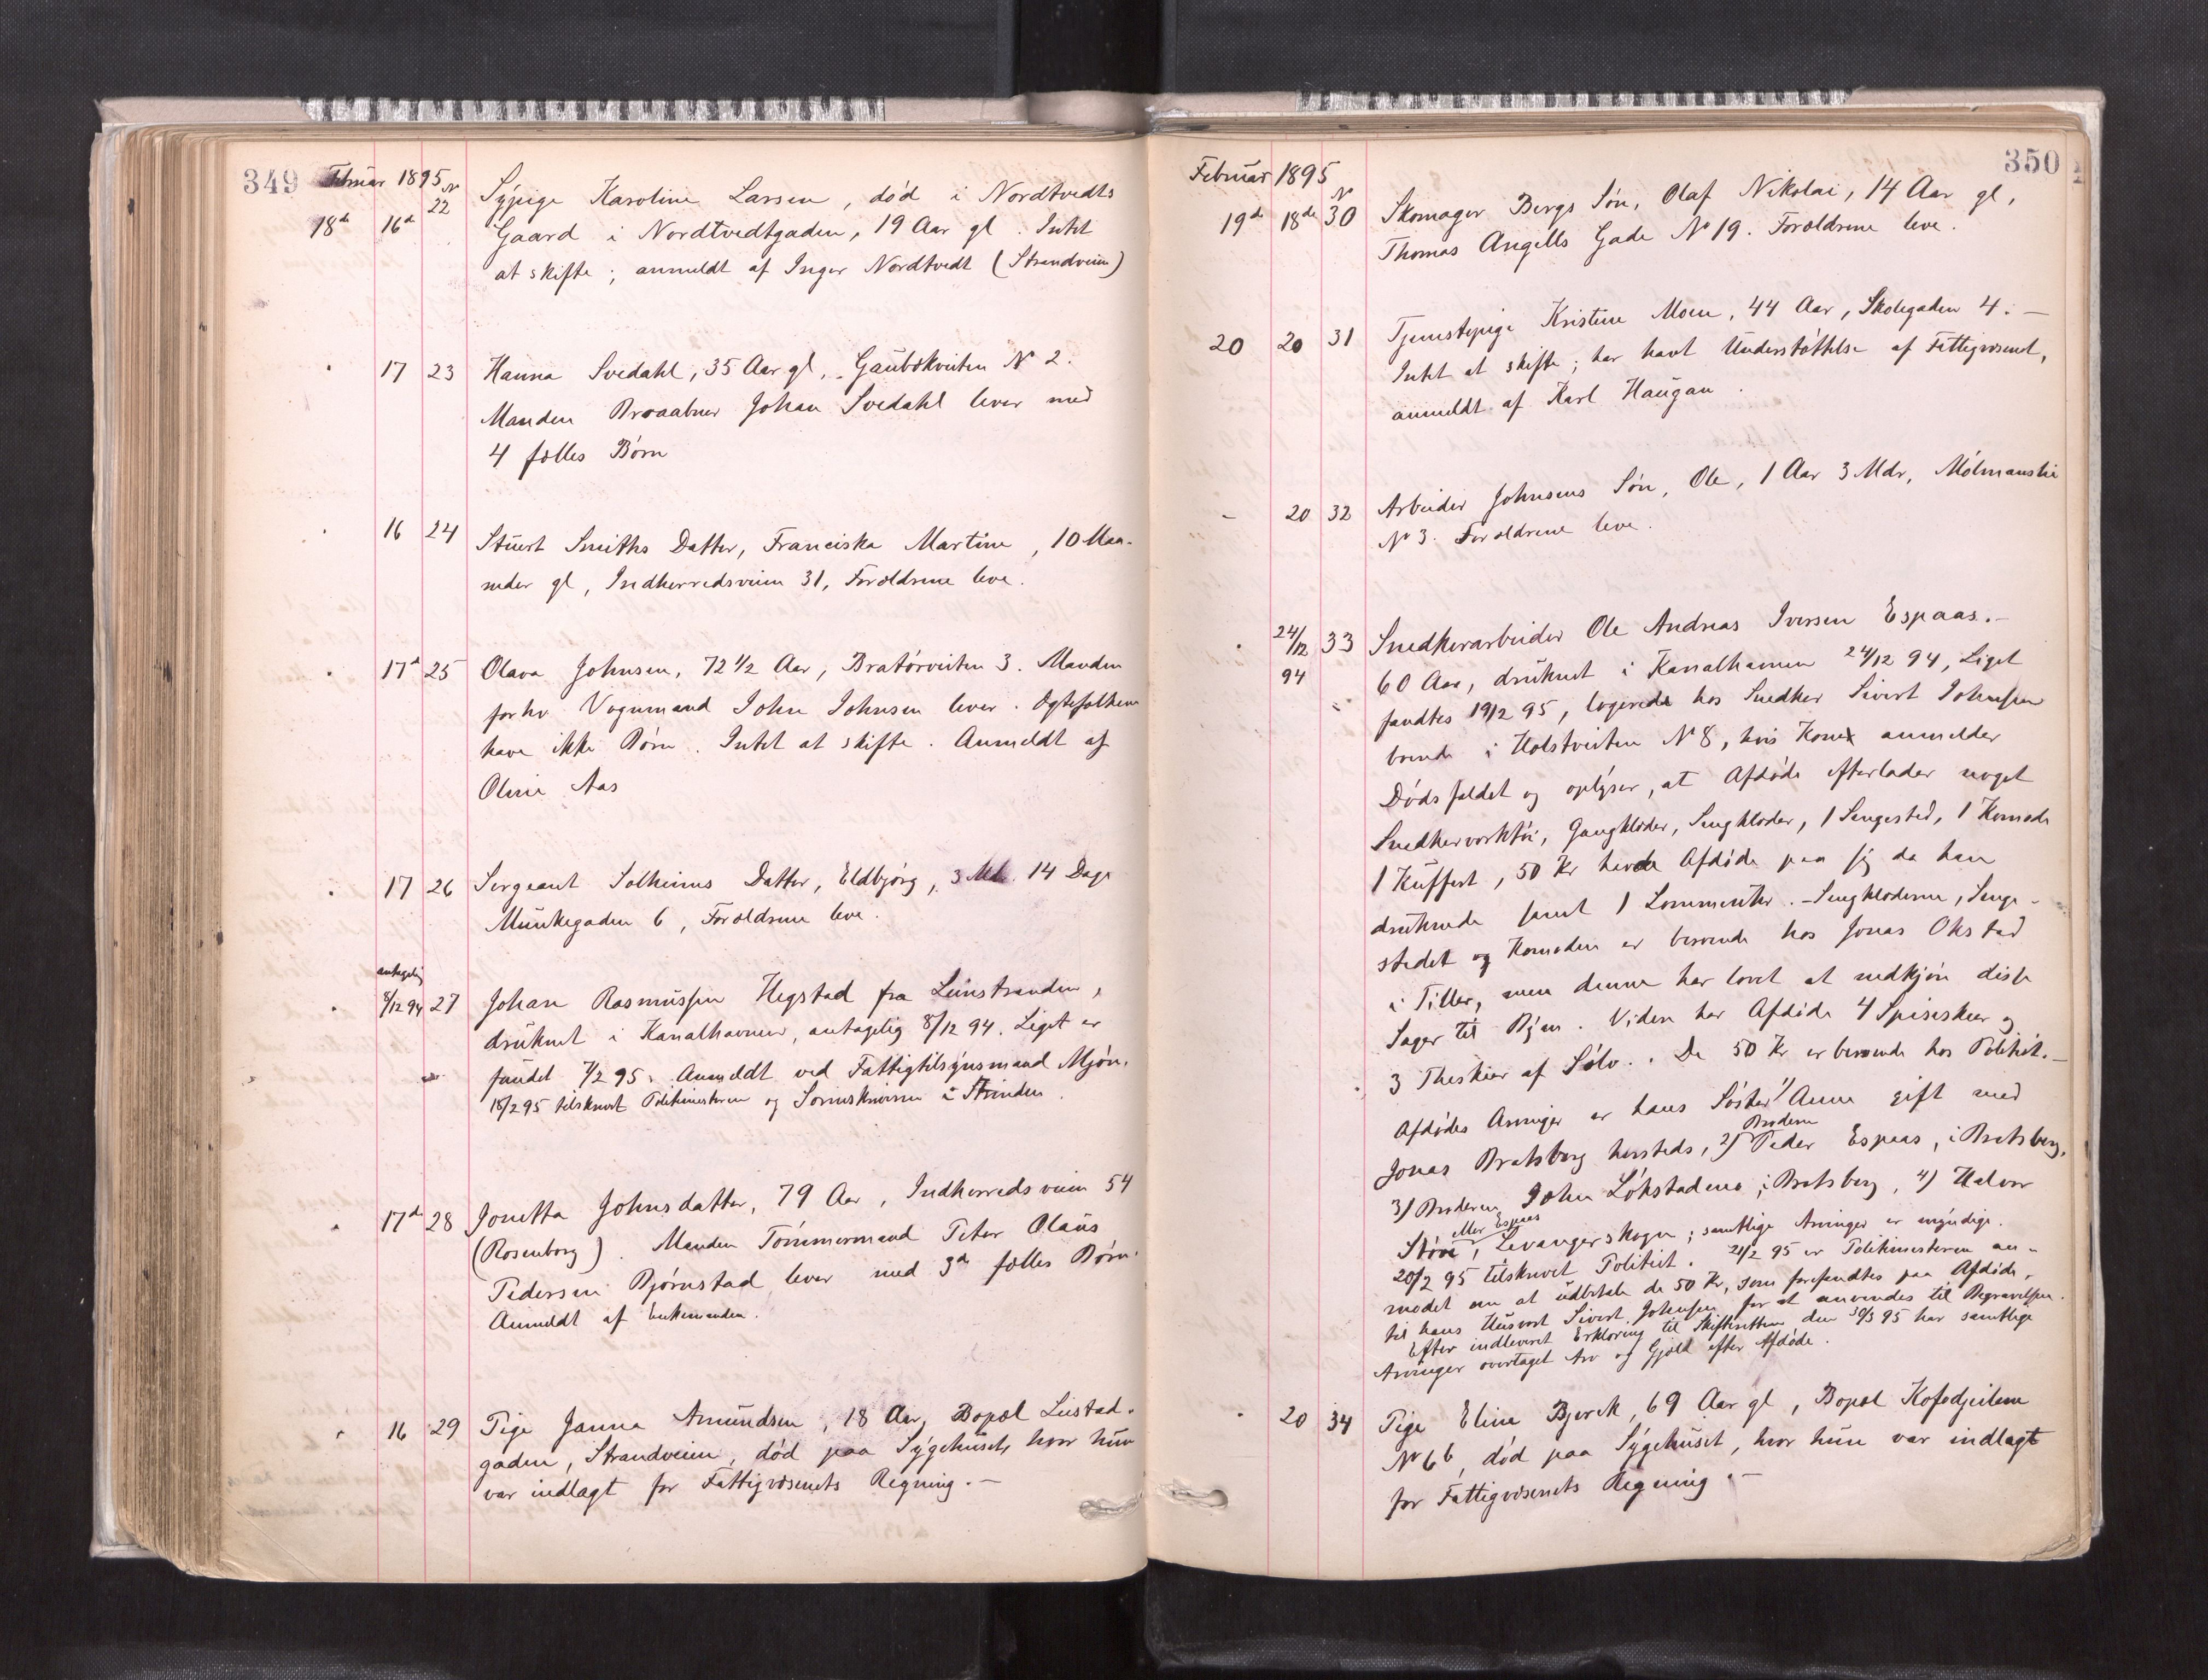 349 Februar 1895
18de 16de N 22 Sypige Karoline Larsen, död i Nordtvedts
Gaard i Nordtvedtgaden, 19 Aar gl. Intet
at skifte; anmeldt af Inger Nordtvedt (Strandveien)
" 17 23 Hanna Svedahl, 35 Aar gl, Gaubækveiten N 2.
Manden Broaabner Johan Svedahl lever med
4 fælles Börn
" 16 24 Stuert Smiths Datter, Franciska Martine, 10 Maa-
neder gl, Indherredsveien 31, Forældrene leve.
" 17d 25 Olava Johnsen, 72 1/2 Aar, Bratörveiten 3. Manden
forhv Vognmand John Johnsen lever. Ægtefolkene
have ikke Börn. Intet at skifte. Anmeldt af
Oline Aas
" 17 26 Sergeant Solheims Datter, Eldbjörg, 3 Md. 14 Dage
Munkegaden 6, Forældrene leve.
" antagelig 8/12 94 27 Johan Rasmussen Hegstad fra Leinstranden,
druknet i Kanalhavnen, antagelig 8/12 94. Liget er
fundet 7/2 95. Anmeldt ved Fattigtilsynsmand Mjön.
18/2 95 tilskrevet Politimesteren og Sorenskriveren i Strinden.
" 17d 28 Jonetta Johnsdatter, 79 Aar, Indherredsveien 54
(Rosenborg). Manden Tömmermand Peter Olaus
Pedersen Björnstad lever med 3de fælles Börn.
Anmeldt af Enkemanden.
" 16 29 Pige Janna Amundsen, 18 Aar, Bopæl Lustad-
gaden, Strandveien, död paa Sygehuset, hvor hun
var indlagt for Fattigvæsenets Regning.-
Februar 1895 350
19de 18de N 30 Skomager Bergs Sön, Olaf Nikolai, 14 Aar gl,
Thomas Angells Gade No 19. Forældrene leve.
20 20 31 Tjenestepige Kristine Moen, 44 Aar, Skolegaden 4.-
Intet at skifte; har havt Understöttelse af Fattigvæsenet,
anmeldt af Karl Haugan.
- 20 32 Arbeider Johnsens Sön, Ole, 1 Aar 3 Mdr, Mölmanstu
No 3. Forældrene leve.
" 24/12 94 33 Snedkerarbeider Ole Andreas Iversen Espaas.-
60 Aar, druknet i Kanalhavnen 24/12 94, Liget
fandtes 19/2 95, logerede hos Snedker Sivert Johnsen
boende i Holstveiten No 8, hvis Kone anmelder
Dödsfaldet og oplyser, at Afdöde efterlader noget
Snedkerværktöi, Gangklæder, Sengklæder, 1 Sengested, 1 Komode
1 Kuffert, 50 Kr havde Afdöde paa sig da han
druknede samt 1 Lommeuhr.- Sengklæderne, Senge-
stedet og Komoden er beroende hos Jonas Okstad
i Tiller, men denne har lovet at nedkjöre disse
Sager til Byen. Viden har Afdöde 4 Spiseskeer og
3 Theskeer af Sölv. De 50 Kr er beroende hos Politiet.-
Afdödes Arvinger er hans Söster 1/ Anne gift med
Jonas Bratsberg hersteds, 2) Broderen Peder Espaas, i Bratsberg,
3) Broderen John Lökstadmo, i Bratsberg, 4) Halvor
Störe eller Espaas, Levangerskogn; samtlige Arvinger er myndige.
20/2 95 tilskrevet Politiet. 21/2 95 er Politimesteren an-
modet om at udbetale de 50 Kr, som forefandtes paa Afdöde,
til hans Husvert Sivert Johnsen for at anvendes til Begravelsen.
Efter indleveret Erklæring til Skifteretten den 30/3 95 har samtlige
Arvinger overtaget Arv og Gjæld efter Afdöde.
" 20 34 Pige Elina Bjerck, 69 Aar gl, Bopæl Kofodgeilan
No 6b, död paa Sygehuset, hvor hun var indlagt
for Fattigvæsenets Regning.-